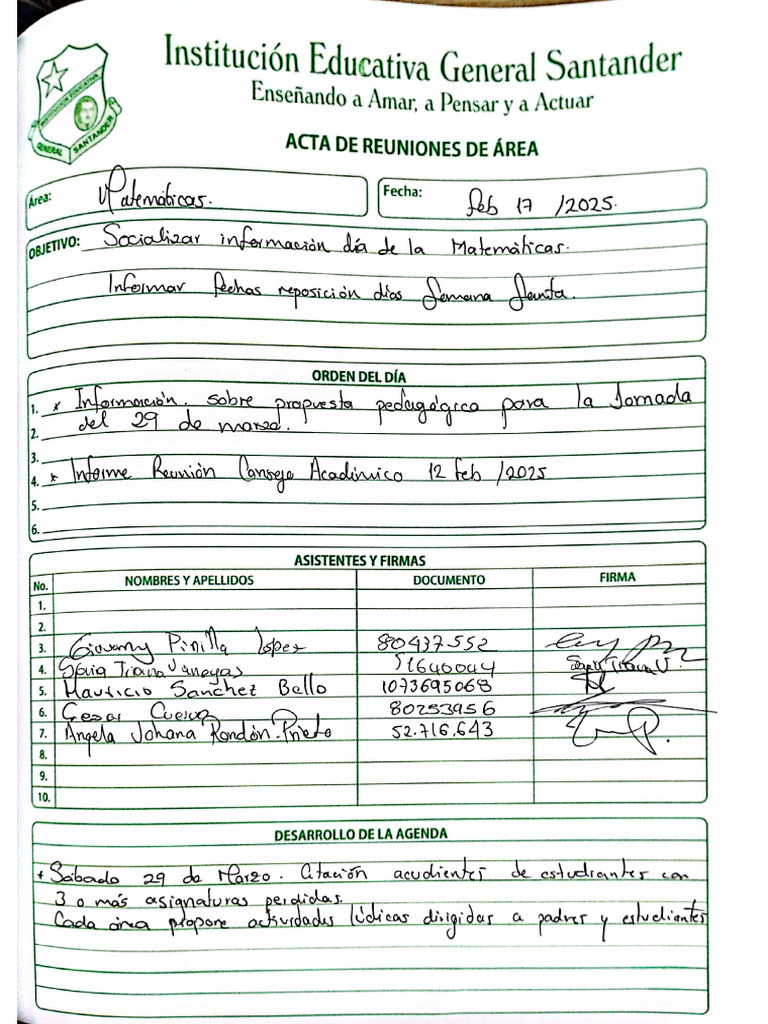 Institución Educativa General Santander
Enseñando a Amar, a Pensar y a Actuar
INSTITUCIÓN EDUCATIVA
GENERAL SANTANDER
ACTA DE REUNIONES DE ÁREA
Área: Matemáticas. Fecha: Feb 17 /2025.
OBJETIVO: Socializar información día de la Matemáticas.
Informar fechas reposición días Semana Santa.
ORDEN DEL DÍA
1. * Información. sobre propuesta pedagógica para la Jornada
2. del 29 de marzo.
3.
4. * Informe Reunión Consejo Académico 12 feb /2025
5.
6.
ASISTENTES Y FIRMAS
No. NOMBRES Y APELLIDOS DOCUMENTO FIRMA
1.
2.
3. Giovanny Pinilla López 80437552
4. Sonia Triana Vanegas 51640044 Sonia Triana V.
5. Mauricio Sanchez Bello 1073695068
6. Cesar Cuervo 80253956
7. Angela Johana Rondón Prieto 52.716.643
8.
9.
10.
DESARROLLO DE LA AGENDA
* Sábado 29 de Marzo. Citación acudientes de estudiantes con
3 o más asignaturas perdidas.
Cada área propone actividades lúdicas dirigidas a padres y estudiantes